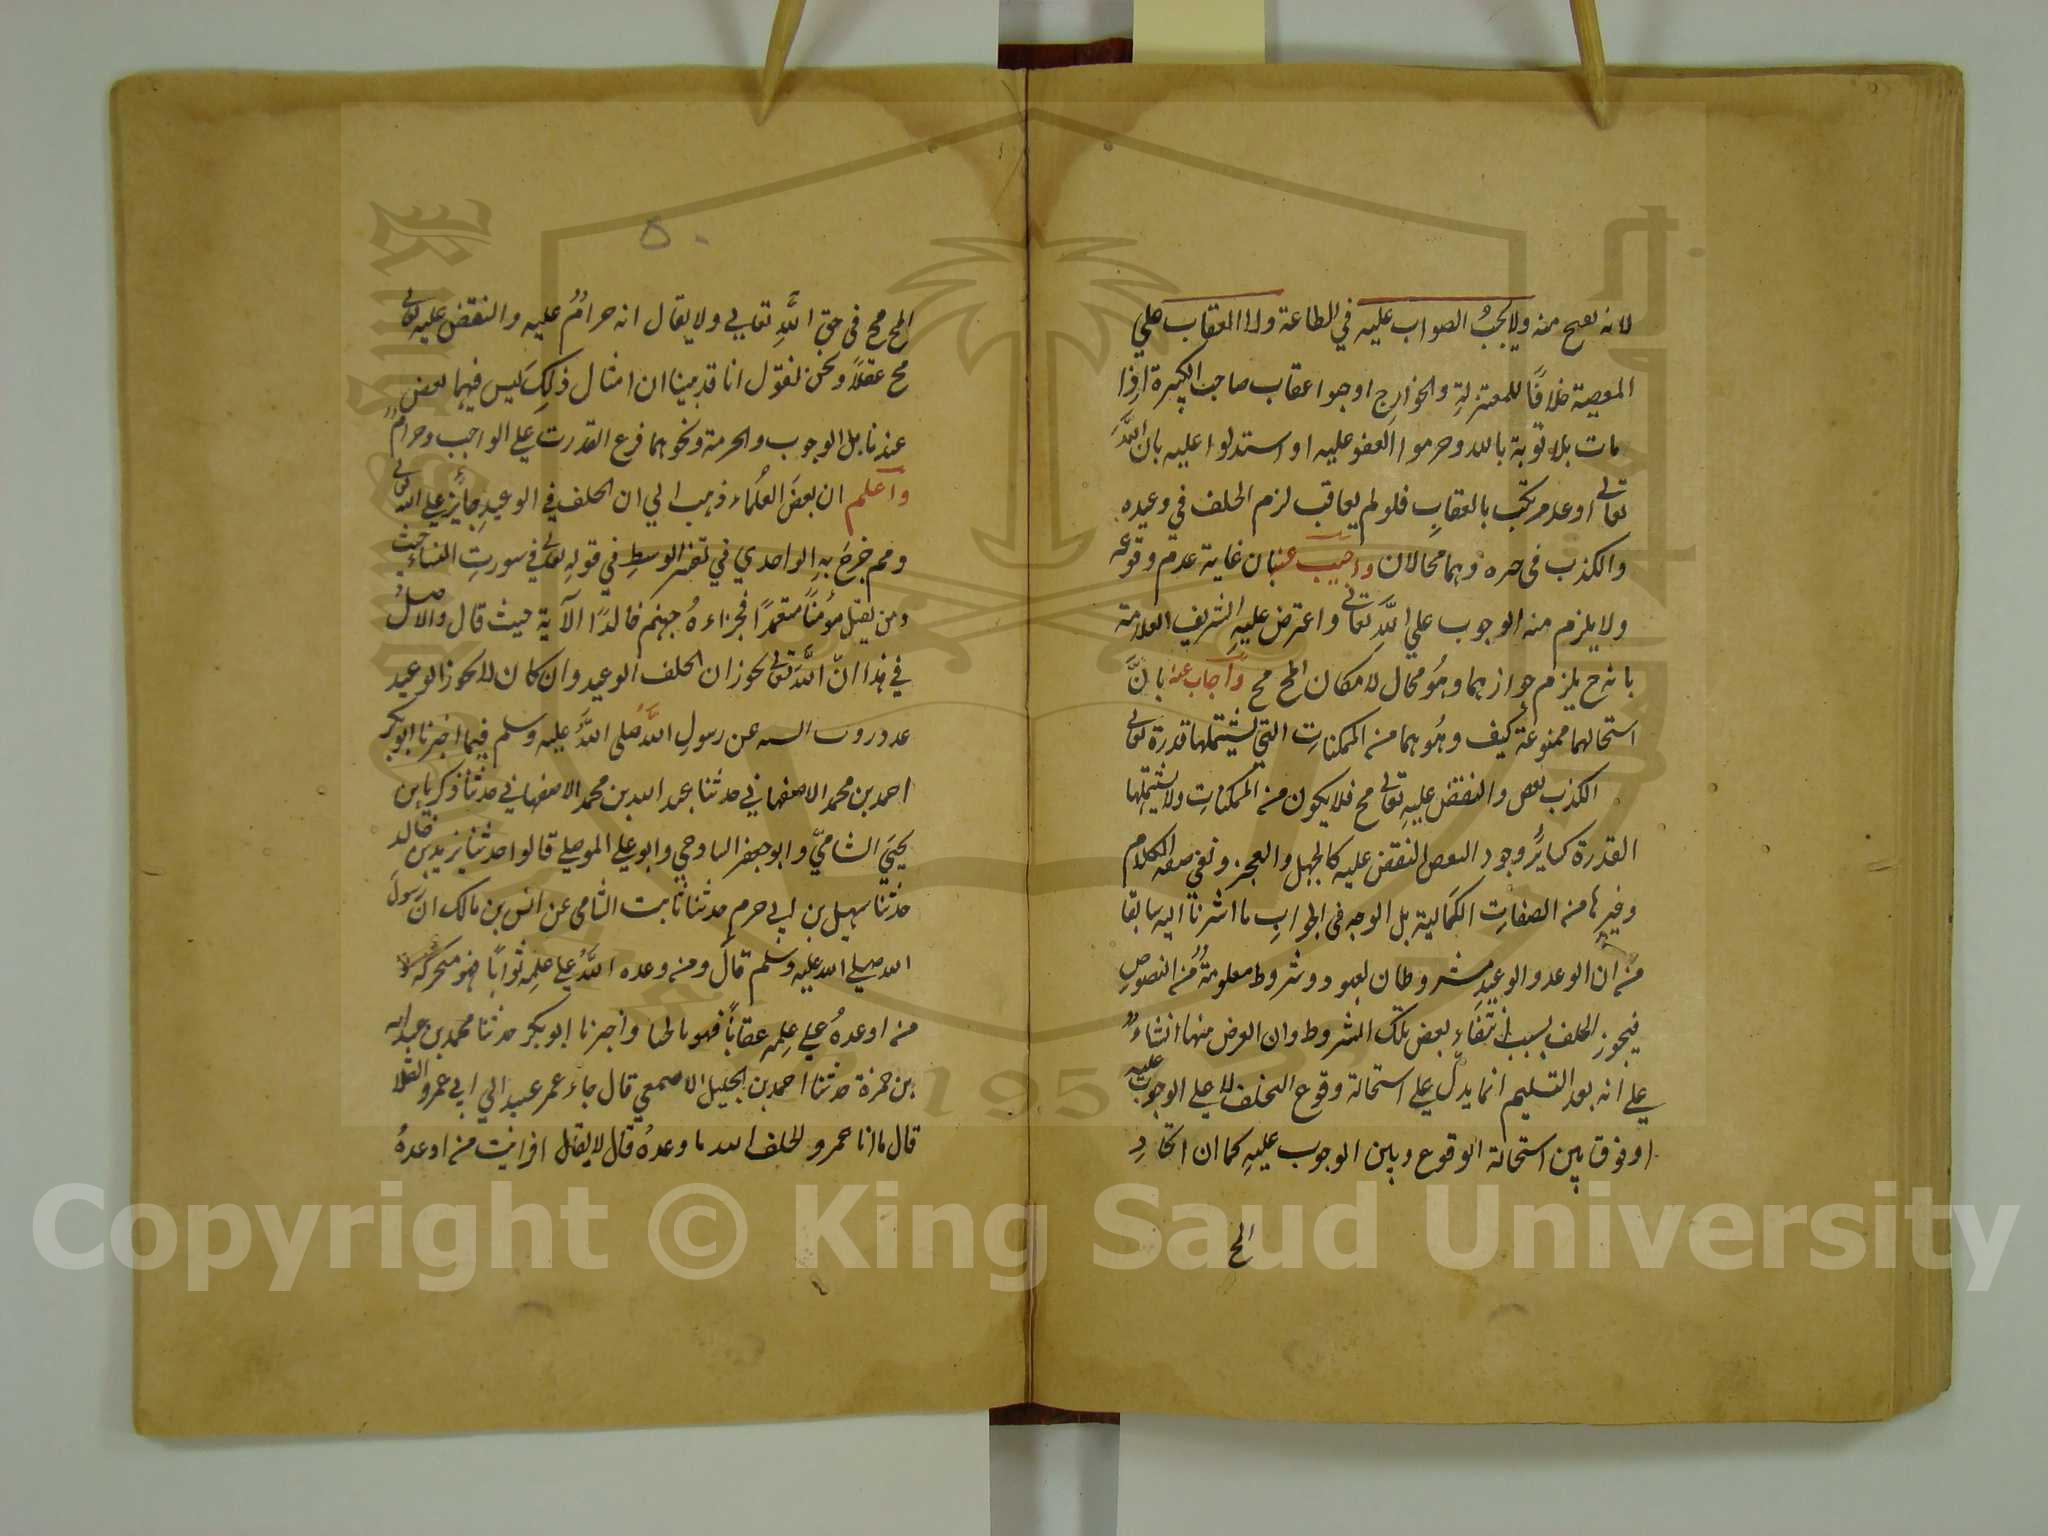 لانه نصح منه ولا يجب الصواب عليه في الطاعة ولا العقاب علي
المعصية خلافاً للمعتزلةِ والخوارج اوجبوا عقاب صاحب الكبيرة اذا
مات بلا توبة بالله وحرموا العفو عليه او استدلوا عليه بان اللَّه
تعالى اوعد مرتكب بالعقابِ فلو لم يعاقب لزم الخلف في وعيده
والكذب فى خبره وهما محالان واجيب عنه بان غاية عدم وقوعه
ولا يلزم منه الوجوب علي اللَّه تعالى واعترض عليهِ الشريف العلامة
بانه ح يلزم جوازهما وهُو محال لا مكان المح مح واجاب عنه بانَّ
استحالهما ممنوعة كيف وهُو هما من الممكناتِ التي يشتملها قدرة تعالى
الكذب نقص والنقض عليهِ تعالى مح فلا يكون من الممكنات ولا يشتملها
القدرة كسايرُ وجود النقص النقض عليه كالجهل والعجز ونفي صفة الكلام
وغيرها من الصفاتِ الكمالية بل الوجه فى الجوابِ ما اشرنا اليه سابقا
من انَّ الوعد والوعيد مشروطان بقيود وشروط معلومةُ من النصوصِ
فيجوز الخلف بسبب انتفاءِ بعض تلك الشروط وان الغرض منها انشاءُ
علي انه بعد التسليم انما يدل علي استحالة وقوع التخلف لا علي الوجوب عليه
اوفوق بين استحالة الوقوع وبين الوجوب عليهِ كما ان اتخاذ
المح
٥٠
المح مح فى حق اللَّه تعالي ولا يقال انه حرامُ عليه والنقض عليه تعالى
مح عقلاً ونحن نقول انا قد بينا ان امثال ذلكَ ليس فيهما نقص
عندنا بل الوجوب والحرمة ونحوهما فرع القدرت علي الواجب وحرامُ
واعلم ان بعضَ العلُماء ذهب الي ان الخلف في الوعيدِ جايزُ علي الله تعالى
وممم خرجَ بهِ الواحدي في تفسير الوسطِ في قولهِ تعالى في سورتِ النساء حيث
ومن يقتل مؤمناً متعمداً فجزاءهُ جهنم خالدًا الآية حيث قال والاصل
في هذا انّ اللَّه تعالى يجوز ان الخلف الوعيد وان كان لا يجوز الوعيد
السنه عن رسولِ اللَّه صَلى اللَّه عليه وسلم فيما اخبرنا ابوبكر
احمد بن محمد الاصفهاني حدثنا عبد الله بن محمد الاصفهاني حدثنا زكريا بن
يحيى الشاميّ وابو جعفر وابو علي الموصلي قالوا حدثنا يزيد بن خالد
حدثنا سهيل بن ابي حرم حدثنا ثابت الشامى عن انس بن مالك ان رسولَ
الله صلي الله عليه وسَلم قال ومن وعده اللَّهُ علي علمِه ثوابًا فهو منجز له
من اوعدهُ علي علمِه عقاباً فهو بالخيا واخبرنا ابو بكر حدثنا محمد بن عبد الله
بن حمزة حدثنا احمد بن الجليل الاصمعي قال جاءَ عمر عبيد الي ابي عمرو العَلا
قال ماانا عمرو الخلف الله ما وعدهُ قال لا يقال افرانيت من اوعدهُ
Copyright © King Saud University
1957